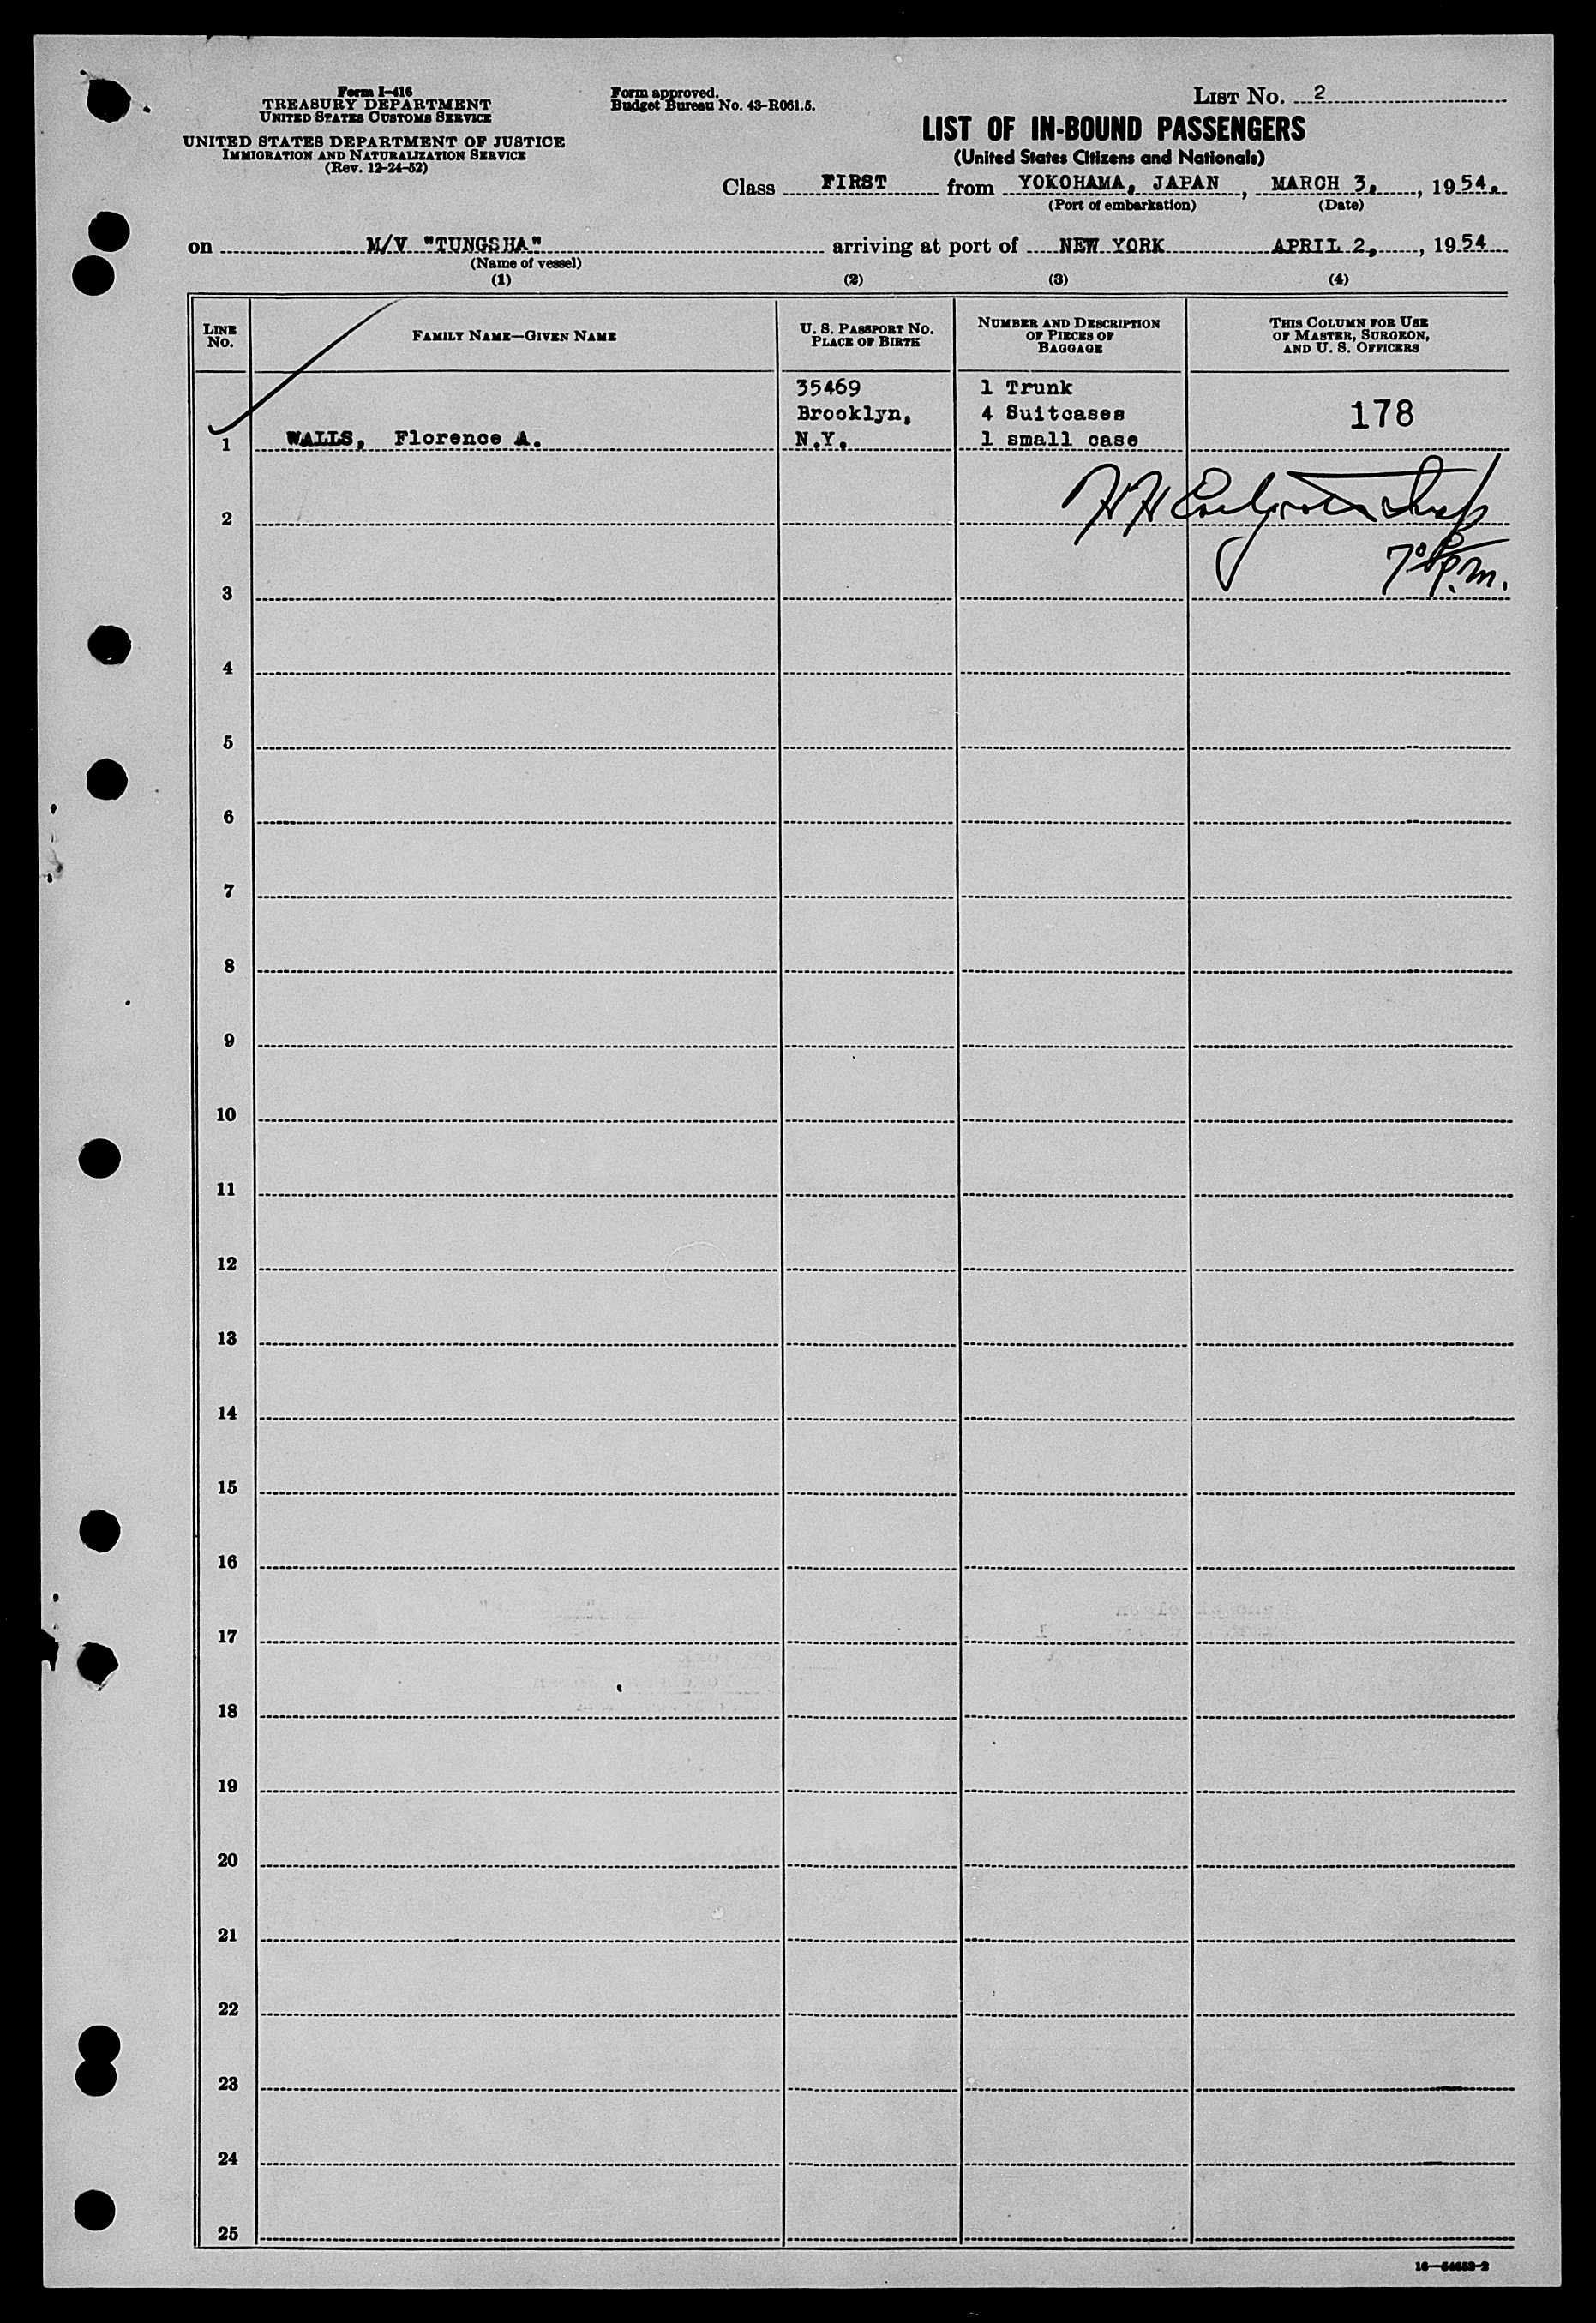 Form I-416
TREASURY DEPARTMENT
UNITED STATES CUSTOMS SERVICE
UNITED STATES DEPARTMENT OF JUSTICE
IMMIGRATION AND NATURALIZATION SERVICE
(Rev. 12-24-52)
Form approved.
Budget Bureau No. 43-R061.5.
LIST No. 2
LIST OF IN-BOUND PASSENGERS
(United States Citizens and Nationals)
Class FIRST from YOKOHAMA, JAPAN, MARCH 3, 1954.
(Port of embarkation) (Date)
on M/V "TUNGSHA" arriving at port of NEW YORK APRIL 2, 1954
(Name of vessel)
(1) (2) (3) (4)
LINE No.
FAMILY NAME—GIVEN NAME
U. S. PASSPORT No.
PLACE OF BIRTH
NUMBER AND DESCRIPTION
OF PIECES OF
BAGGAGE
THIS COLUMN FOR USE
OF MASTER, SURGEON,
AND U. S. OFFICERS
35469 1 Trunk
Brooklyn, 4 Suitcases 178
1 WALLS, Florence A. N.Y. 1 small case
2
7 p.m.
3
4
5
6
7
8
9
10
11
12
13
14
15
16
17
18
19
20
21
22
23
24
25